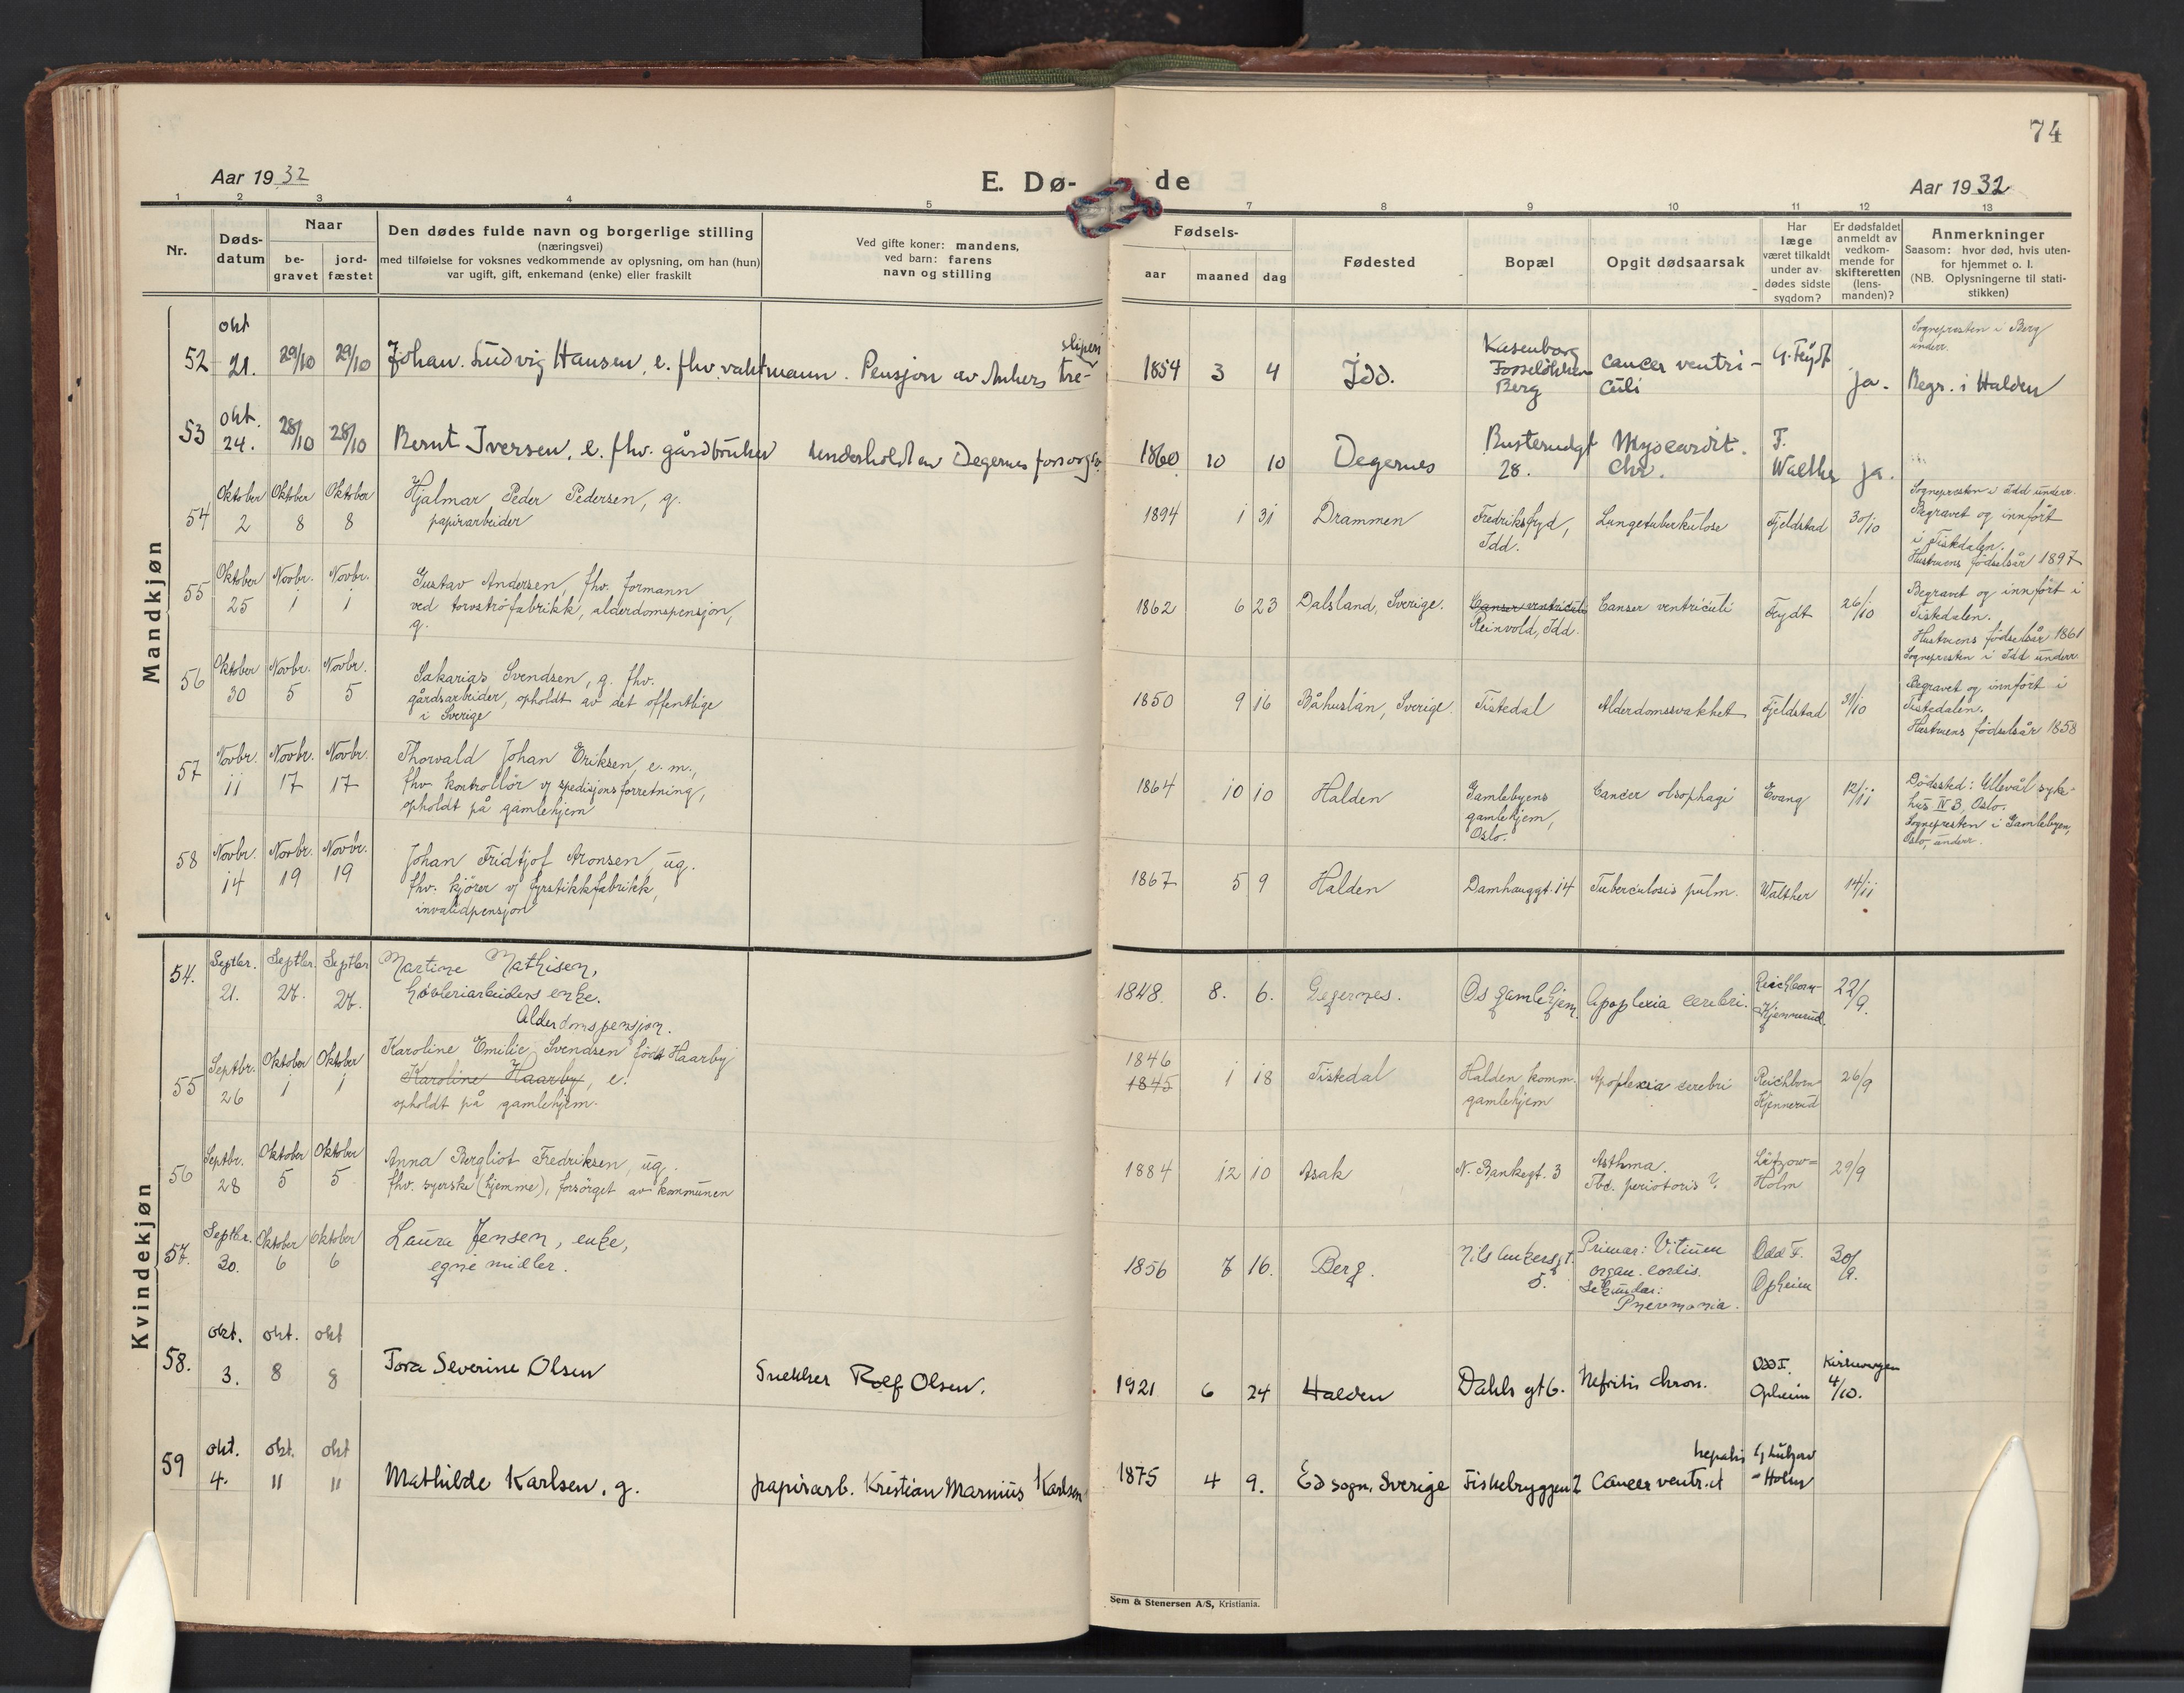 74
Aar 1932
E. Dø-
de
Aar 1932
1 2 3 4 5 7 8 9 10 11 12 13
Nr.
Døds-
datum
Naar
be-
gravet
jord-
fæstet
Den dødes fulde navn og borgerlige stilling
(næringsvei)
med tilføielse for voksnes vedkommende av oplysning, om han (hun)
var ugift, gift, enkemand (enke) eller fraskilt
Ved gifte koner: mandens,
ved barn: farens
navn og stilling
Fødsels-
aar maaned dag
Fødested
Bopæl
Opgit dødsaarsak
Har
læge
været tilkaldt
under av-
dødes sidste
sygdom?
Er dødsfaldet
anmeldt av
vedkom-
mende for
skifteretten
(lens-
manden)?
Anmerkninger
Saasom: hvor død, hvis uten-
for hjemmet o. l.
(NB. Oplysningerne til stati-
stikken)
Mandkjøn
52 okt 21. 29/10 29/10 Johan Ludvig Hansen, e. fhv. vaktmann. Pensjon av Ankers tre-
sliperi
1854 3 4 Idd.
Fosseløkken
Berg
cancer ventri-
culi
ja.
Sognepresten i Berg
underr.
Begr. i Halden
53 okt. 24. 28/10 28/10 Bernt Iversen, e. fhv. gårdbruker underholdt av Degernes forsorgsv.
1860 10 10 Degernes
Busterudgt
28.
Myocardit.
chr.
F.
Walther
ja.
54 Oktober 2 Oktober 8 Oktober 8
Hjalmar Peder Pedersen, g.
papirarbeider
1894 1 31 Drammen
Fredriksfryd,
Idd.
Lungetuberkulose Fjeldstad 30/10
Sognepresten i Idd underr.
Begravet og innført
i Tistedalen.
Hustruens fødselsår 1897
55 Oktober 25 Novbr. 1 Novbr. 1
Gustav Andersen, fhv. formann
ved torvströfabrikk, alderdomspensjon,
g.
1862 6 23 Dalsland, Sverige.
Canser ventriculi
Reinvold, Idd.
Canser ventriculi Feydt 26/10
Begravet og innført i
Tistedalen.
Hustruens fødselsår 1861
Sognepresten i Idd underr.
56 Oktober 30 Novbr. 5 Novbr. 5
Sakarias Svendsen, g. fhv.
gårdsarbeider, opholdt av det offentlige
i Sverige
1850 9 16 Båhuslän, Sverige. Tistedal Alderdomssvakhet Fjeldstad 31/10
Begravet og innført i
Tistedalen.
Hustruens fødselsår 1858
57 Novbr. 11 Novbr. 17 Novbr. 17
Thorvald Johan Eriksen, e.m.,
fhv. kontrollør v/ spedisjonsforretning,
opholdt på gamlehjem
1864 10 10 Halden
Gamlebyens
gamlehjem,
Oslo.
Cancer oesophagi Evang 12/11
Dödssted: Ullevål syke-
hus IV B, Oslo.
Sognepresten i Gamlebyen,
Oslo, underr.
58 Novbr. 14 Novbr. 19 Novbr. 19
Johan Fridtjof Aronsen, ug.
fhv. kjører v/ fyrstikkfabrikk,
invalidpensjon
1867 5 9 Halden Damhauggt. 14 Tuberculosis pulm. Walther 14/11
Kvindekjøn
54. Septbr. 21. Septbr. 27. Septbr 27.
Martine Mathisen,
høvleriarbeiders enke.
Alderdomspensjon.
1848. 8. 6. Degernes. Os gamlehjem. Apoplexia cerebri.
Reichborn-
Kjennerud.
22/9.
55 Septbr. 26 Oktober 1 Oktober 1
Karoline Emilie Svendsen født Haarby
Karoline Haarby, e.
opholdt på gamlehjem.
1846
1845 1 18 Tistedal
Halden komm.
gamlehjem
Apoplexia cerebri
Reichborn-
Kjennerud
26/9
56 Septbr. 28 Oktober 5 Oktober 5
Anna Bergliot Fredriksen, ug.
fhv. syerske (hjemme), forsørget av kommunen
1884 12 10 Asak N. Bankegt. 3
Asthma.
Lützow=
Holm
29/9
57. Septbr. 30. Oktober 6 Oktober 6
Laura Jensen, enke,
egne midler.
1856 7 16. Berg.
Nils Ankersgt.
5.
Primær: Vitium
organ. cordis.
Sekundær:
Pneumonia.
Odd F.
Opheim
30/9.
58. okt. 3. okt. 8 okt 8
Tora Severine Olsen Snekker Rolf Olsen.
1921 6 24 Halden Dahls gt 6. Nefritis chron.
Odd F.
Opheim
Kirkevergen
4/10.
59 okt. 4. okt. 11 okt 11
Mathilde Karlsen, g. papirarb. Kristian Marinius Karlsen
1875 4 9. Ed sogn, Sverige Fiskebryggen 2 Cancer ventr. et
hepatis
Lützow
=Holm
Sem & Stenersen A/S, Kristiania.